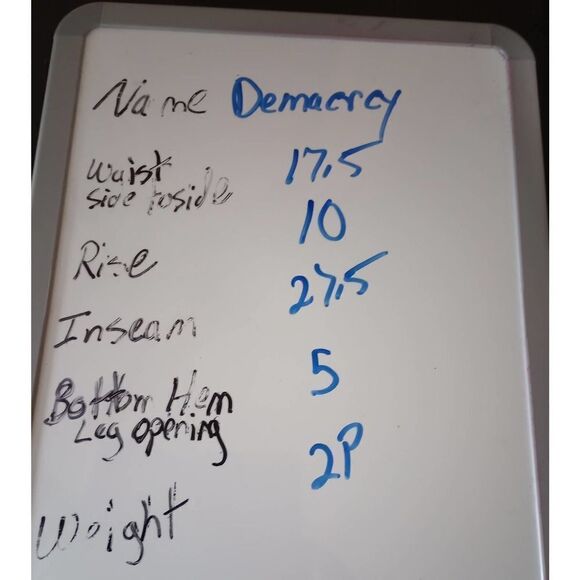 Name Demacrcy
Waist 17.5
side toside
Rise 10
Inseam 27.5
Bottom Hem 5
Leg opening
Weight 2P